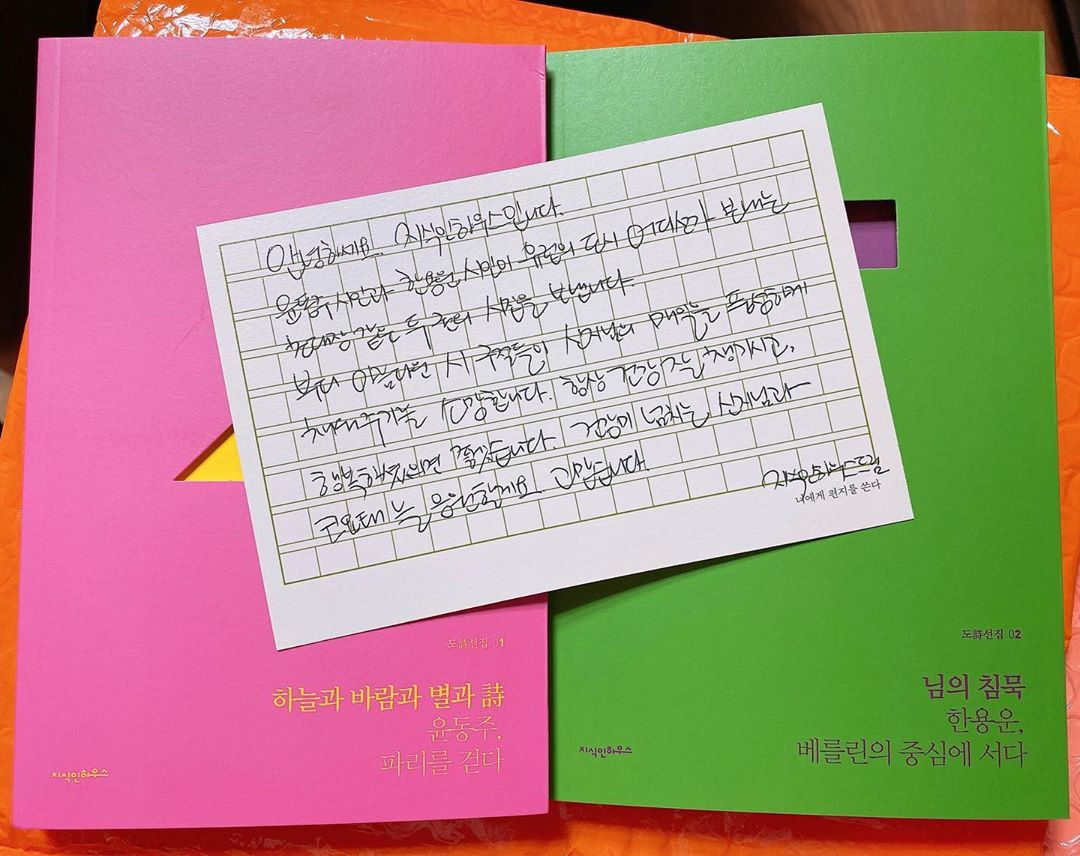 안녕하세요. 지식인하우스입니다.
윤동주 시인과 한용운 시인이 유럽의 도시 어디선가 보내는
초대장 같은 두 권의 시집을 보냅니다.
부디 아름다운 시 구절들이 신지님의 매일을 풍성하게
채워주기를 소망합니다. 항상 건강 잘 챙기시고,
행복하셨으면 좋겠습니다. 건강미 넘치는 신지님과
코요태 늘 응원할게요. 고맙습니다.
지식인하우스 드림
너에게 편지를 쓴다
도詩선집 01
하늘과 바람과 별과 詩
윤동주,
파리를 걷다
지식인하우스
도詩선집 02
님의 침묵
한용운,
베를린의 중심에 서다
지식인하우스